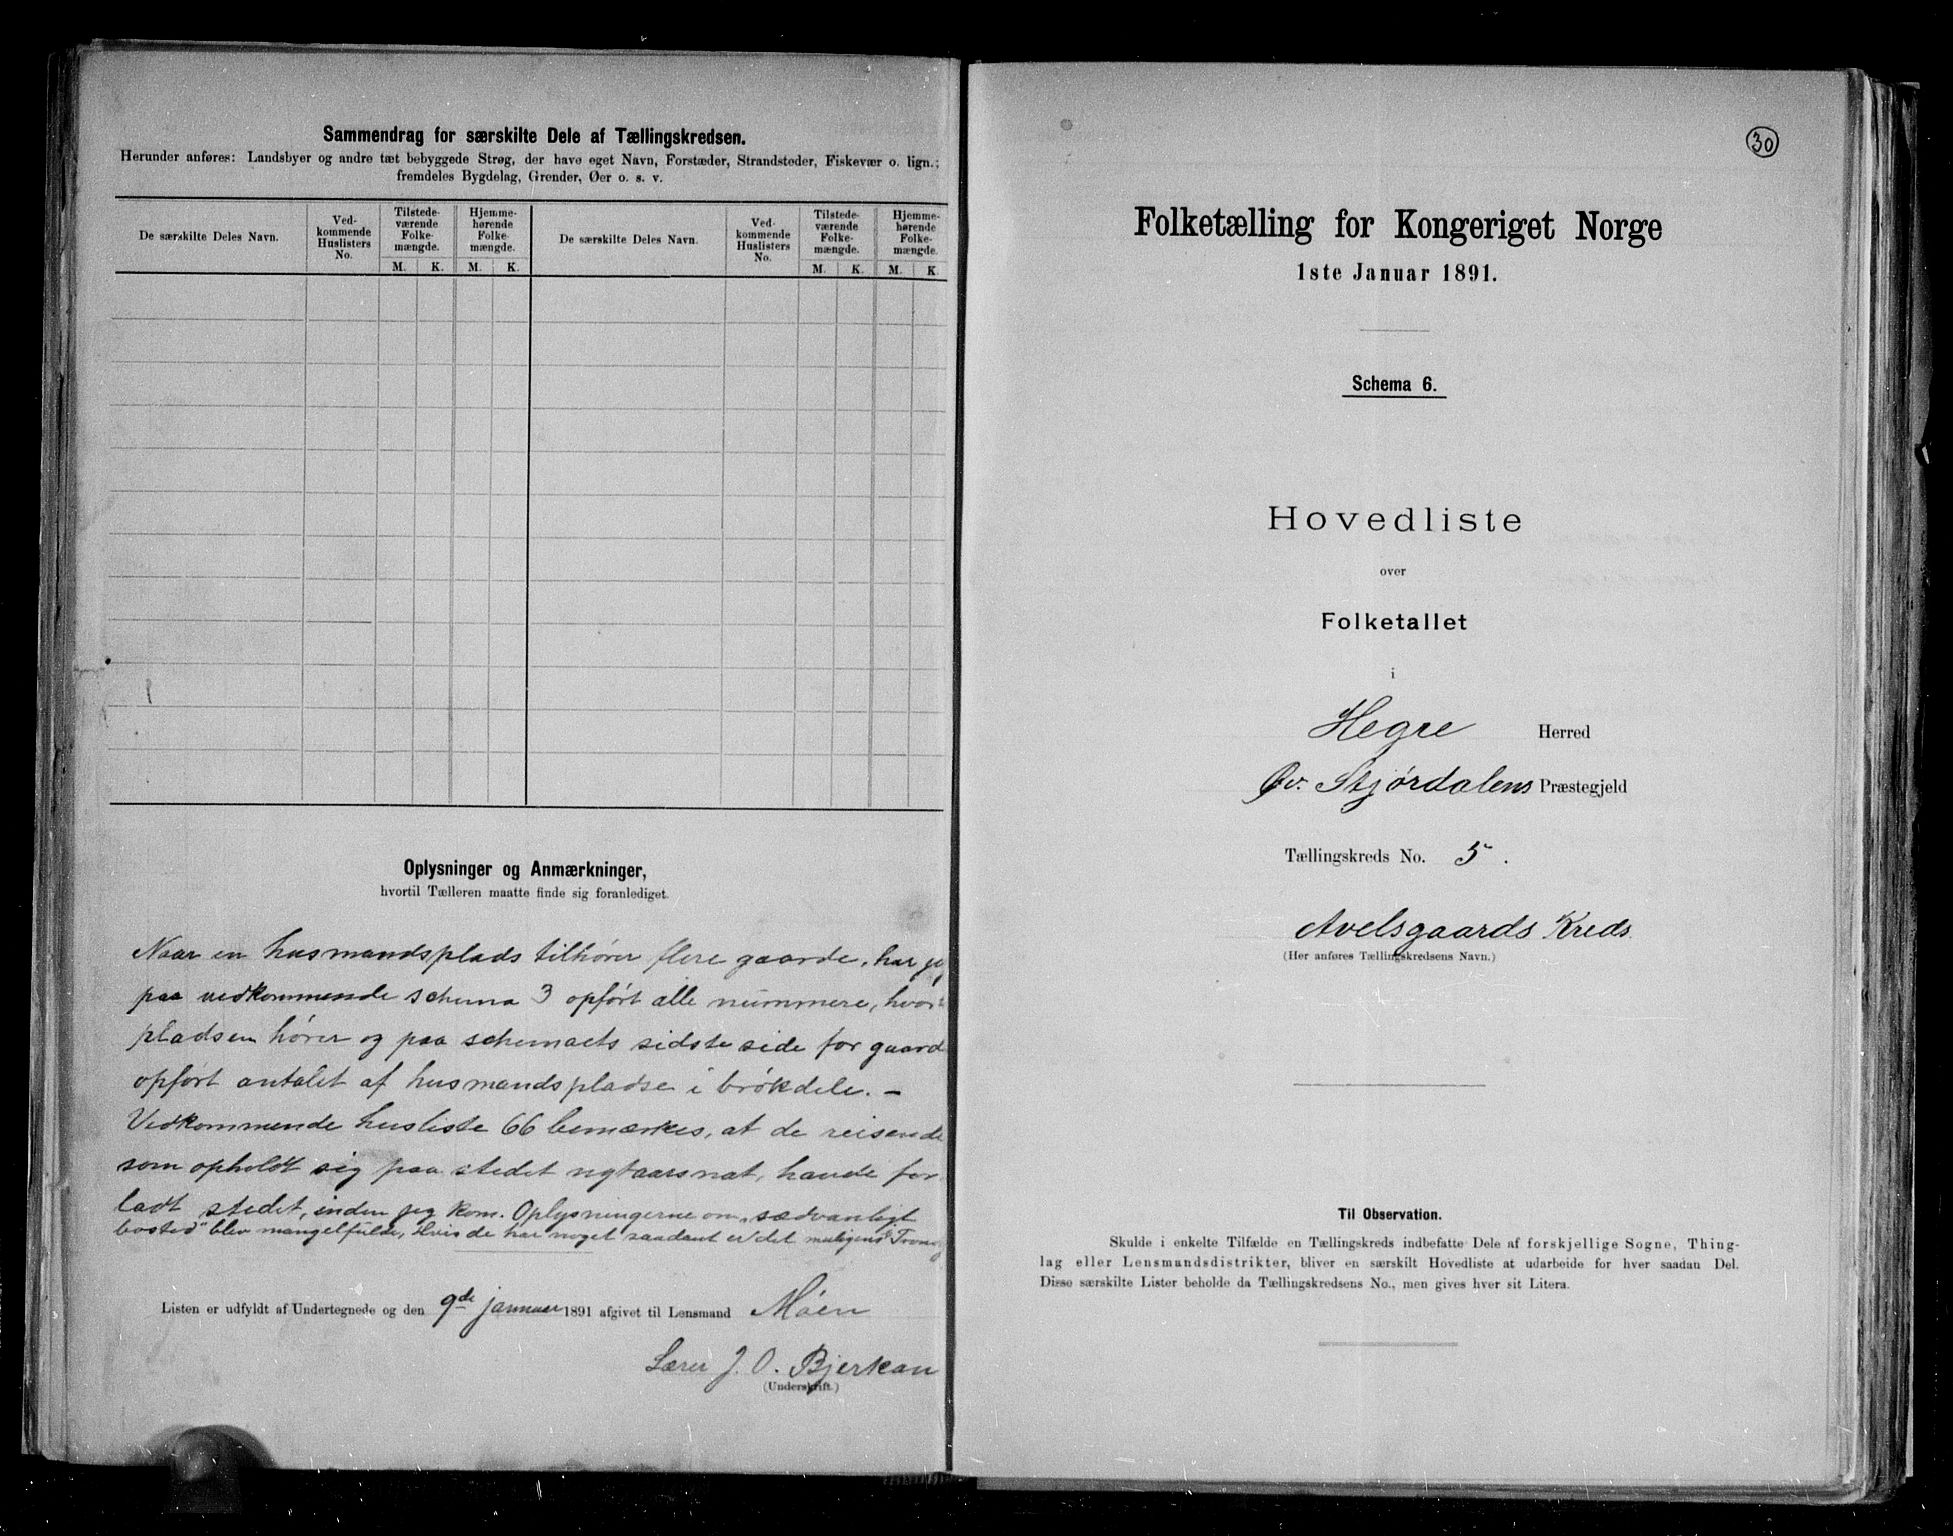 Sammendrag for særskilte Dele af Tællingskredsen.
Herunder anføres: Landsbyer og andre tæt bebyggede Strøg, der have eget Navn, Forstæder, Strandsteder, Fiskevær o. lign.;
fremdeles Bygdelag, Grender, Øer o. s. v.
De særskilte Deles Navn.
Ved-
kommende
Huslisters
No.
Tilstede-
værende
Folke-
mængde.
M. K.
Hjemme-
hørende
Folke-
mængde.
M. K.
De særskilte Deles Navn.
Ved-
kommende
Huslisters
No.
Tilstede-
værende
Folke-
mængde.
M. K.
Hjemme-
hørende
Folke-
mængde.
M. K.
Oplysninger og Anmærkninger,
hvortil Tælleren maatte finde sig foranlediget.
Naar en husmandsplads tilhører flere gaarde, har jeg
paa vedkommende schema 3 opført alle nummere, hvor
pladsen hører og paa schemaets sidste side for gaard
opført antalet af husmandspladse i brøkdele. –
Vedkommende husliste 66 bemærkes, at de reisende
som opholdt sig paa stedet nytaarsnat, havde for
ladt stedet, inden jeg kom. Oplysningerne om „sædvanligt
bosted" blev mangelfulde, Hvis de har noget saadant er det muligens
Listen er udfyldt af Undertegnede og den 9de januar 1891 afgivet til Lensmand Moen
Lærer J. O. Bjerkan
(Underskrift.)
30
Folketælling for Kongeriget Norge
1ste Januar 1891.
Schema 6.
Hovedliste
over
Folketallet
i
Hegre Herred
Øv. Stjørdalens Præstegjeld
Tællingskreds No. 5.
Avelsgaards Kreds.
(Her anføres Tællingskredsens Navn.)
Til Observation.
Skulde i enkelte Tilfælde en Tællingskreds indbefatte Dele af forskjellige Sogne, Thing-
lag eller Lensmandsdistrikter, bliver en særskilt Hovedliste at udarbeide for hver saadan Del.
Disse særskilte Lister beholde da Tællingskredsens No., men gives hver sit Litera.